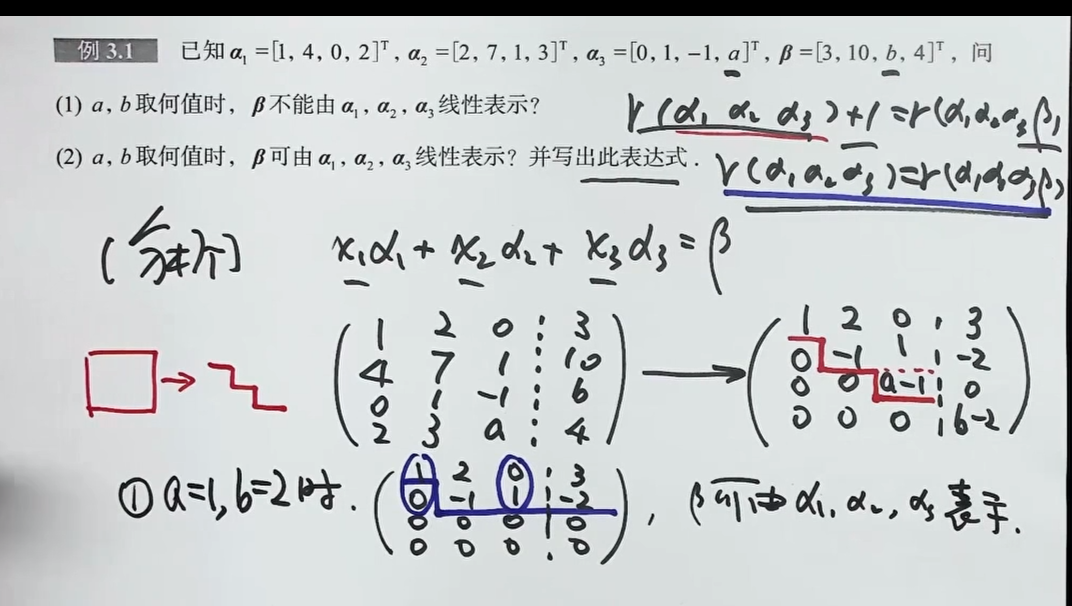 例 3.1 已知 α₁=[1, 4, 0, 2]ᵀ, α₂=[2, 7, 1, 3]ᵀ, α₃=[0, 1, -1, a]ᵀ, β=[3, 10, b, 4]ᵀ, 问
(1) a, b 取何值时, β 不能由 α₁, α₂, α₃ 线性表示?
r(α₁ α₂ α₃)+1=r(α₁α₂α₃β)
(2) a, b 取何值时, β 可由 α₁, α₂, α₃ 线性表示? 并写出此表达式.
r(α₁α₂α₃)=r(α₁α₂α₃β)
x₁α₁+x₂α₂+x₃α₃=β
1 2 0 ┆ 3
4 7 1 ┆ 10
0 1 -1 ┆ b
2 3 a ┆ 4
→
1 2 0 ┆ 3
0 -1 1 ┆ -2
0 0 a-1 ┆ 0
0 0 0 ┆ b-2
① a=1, b=2时.
1 2 0 ┆ 3
0 -1 1 ┆ -2
0 0 0 ┆ 0
0 0 0 ┆ 0
, β可由α₁, α₂, α₃表示.